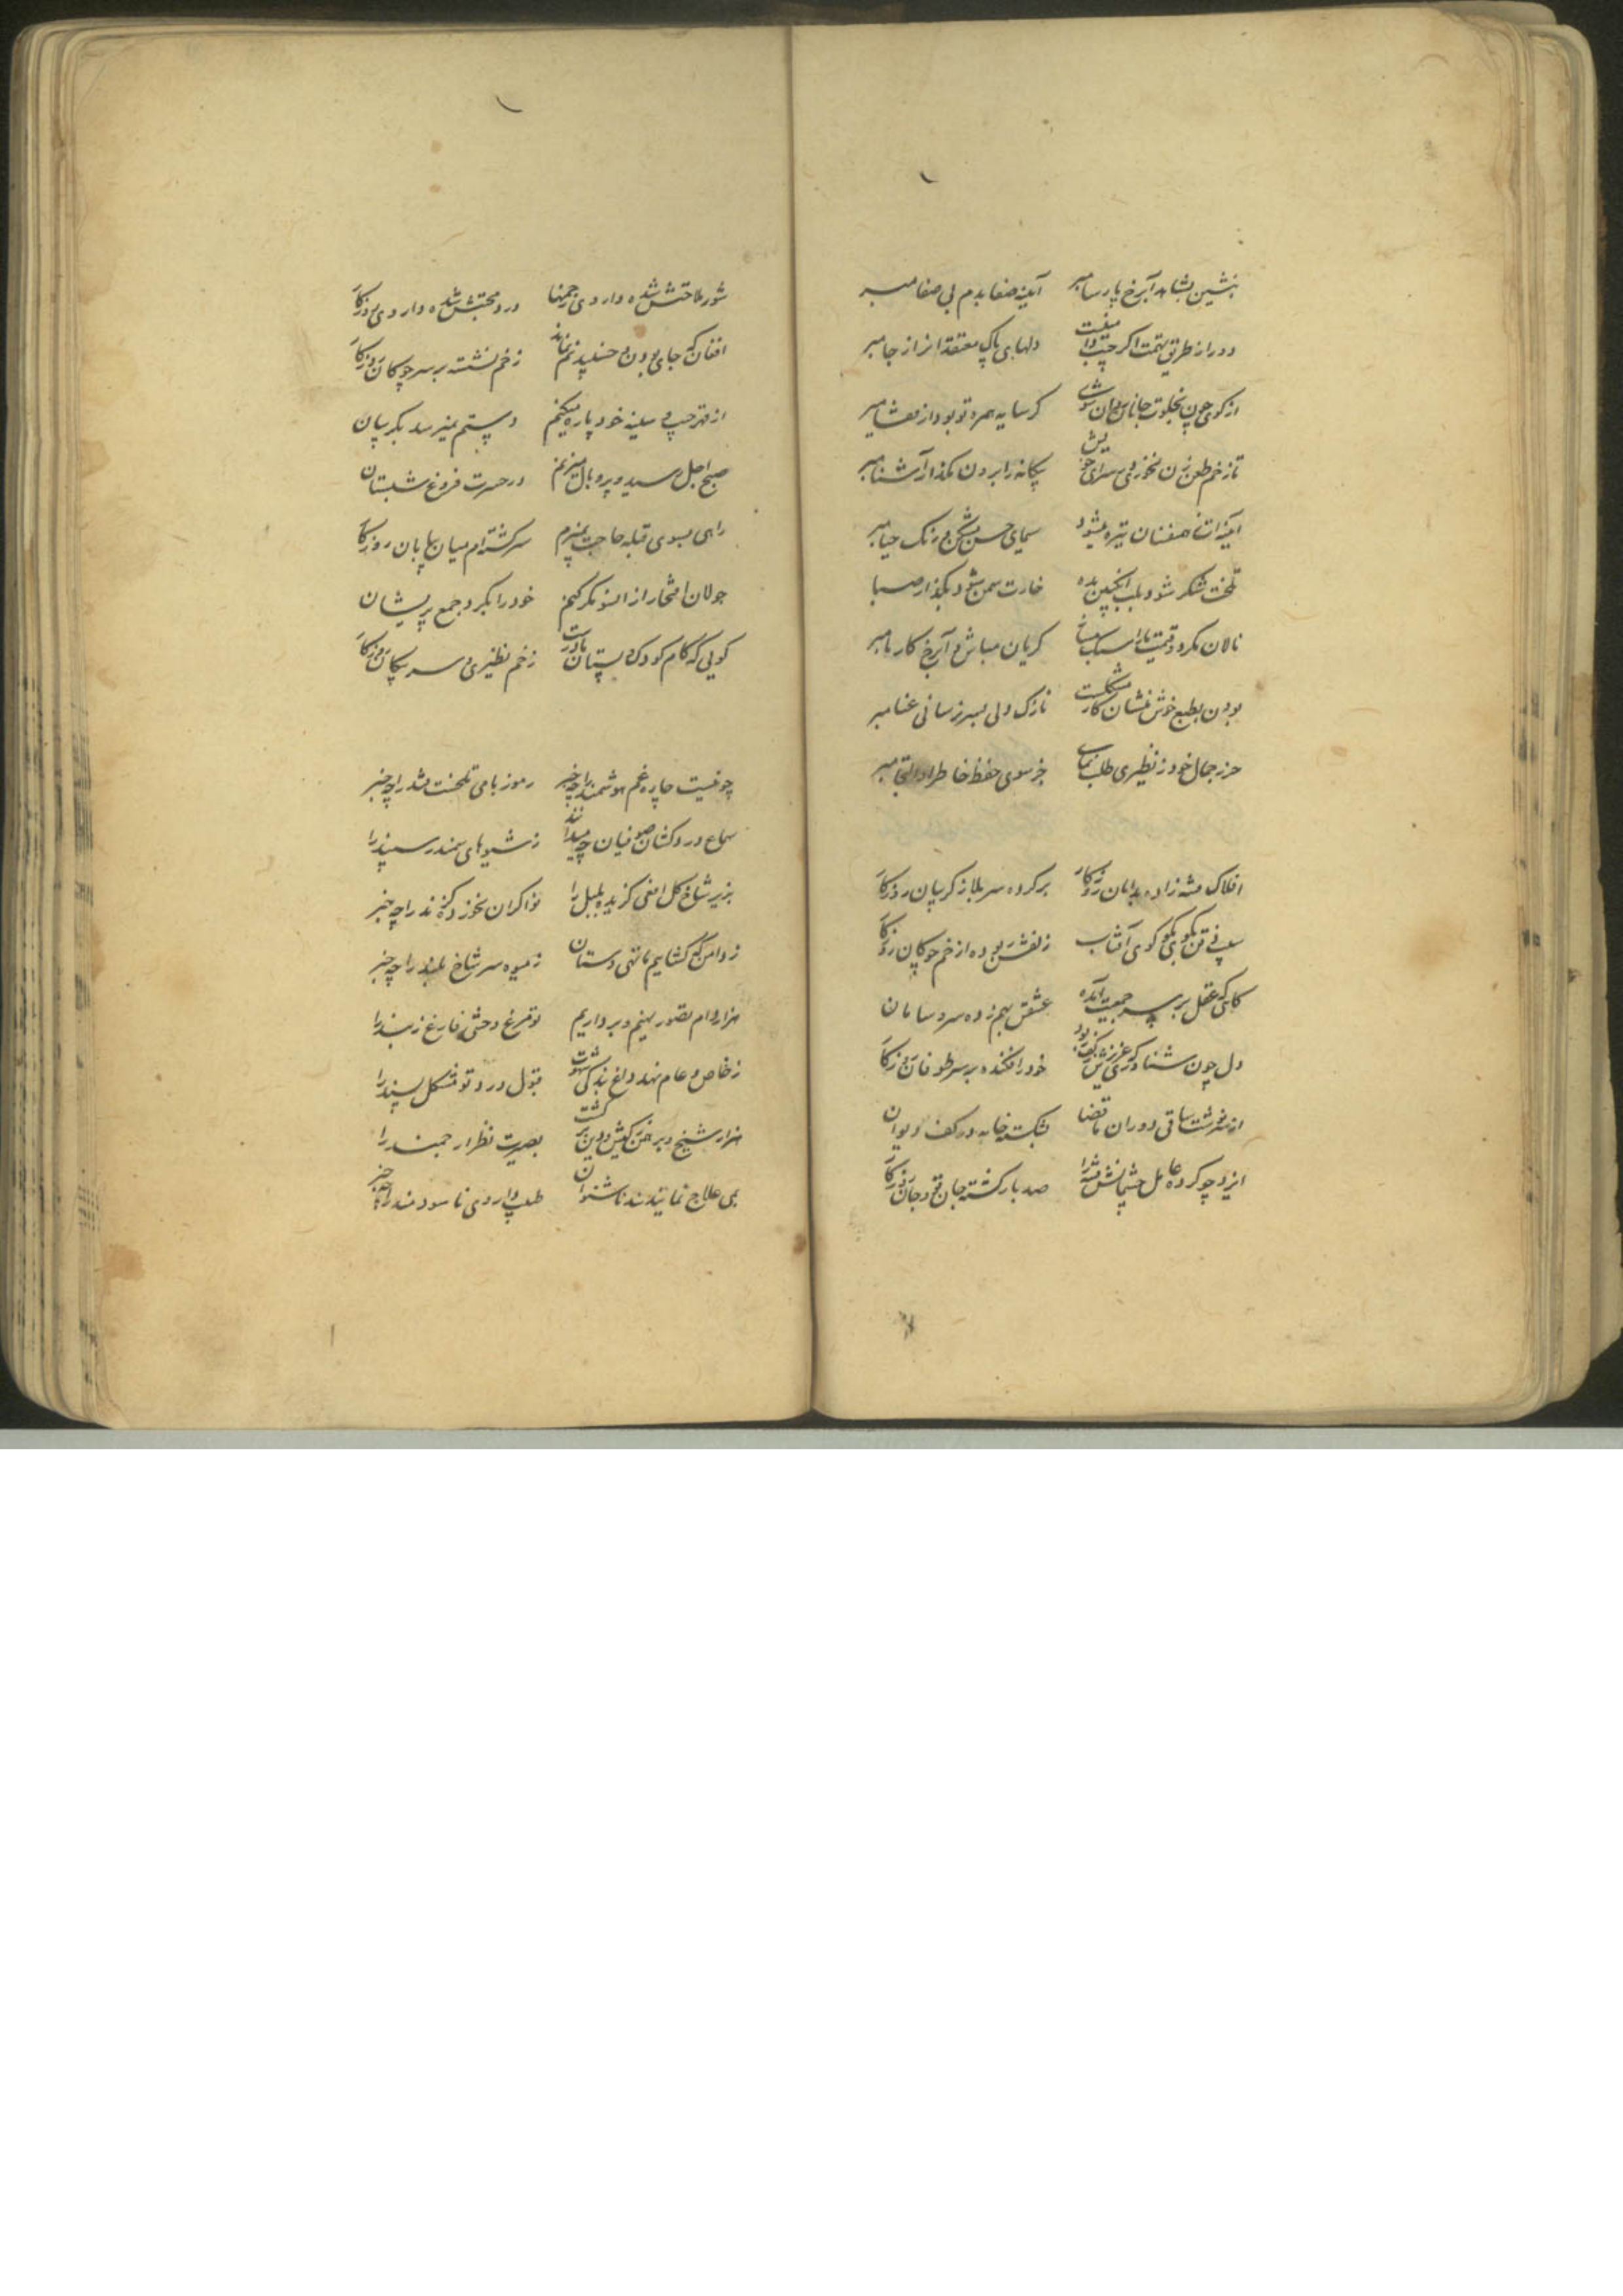 بنشین بشاهد آبرخ پارسا مبر آیینه صفا بدم بی صفا مبر
دور از طریق تهمت اگر دلهای پاک معتقدانرا ز جا مبر
از کوی چون بخلوت جانان روان شوی گر سایه همره تو بود از قفا مبر
تا زخم طعن نخوری در سرای خویش بیکانه را برون مگذار آشنا مبر
آیینه ات ز همنفسان تیره میشود سیمای حسن مشکن و رنک حیا مبر
تلخت شکر شود بلب انکبین بده خارت سمن شود بکذار صبا
نالان مکرد و قیمت یاران گریان مباش و آبرخ کار ما مبر
بودن بطبع خوش منشان کار مشکلست نازک دلی بسر نرسانی عنا مبر
حرز جمال خود ز نظیری طلب نمای جز سوی حفظ خاطر او التجا مبر
افلاک فتنه زاده بدامان روزکار بر کرده سر بلا ز کریبان روزکار
کوی آفتاب زلفش ربوده از خم چوکان روزکار
کاهی که عقل بر سر جمعیت آمده عشقش بهم زده سر و سامان
دل چون شناوری که عزیزش بکف بود خود را فکنده بر سر طوفان روزکار
ساقی دوران ما قضا بشکسته خامه در کف دیوان
ایزد چو کرده عامل چشمانش فتنه را صد بار کشته جان و جان روزکار
شور ملاحتش شده داروی زخمها درد محبتش شده داروی روزکار
افغان که جای بودن و جنبیدنم نماند زخمم نشسته بر سر پیکان روزکار
از قهر جیب سینه خود پاره میکنم دستم نمیرسد بکریبان
صبح اجل رسید و پر و بال میزنم در حسرت فروغ شبستان
راهی بسوی قبله حاجت نمیبرم سرکشته ام میان بیابان روزکار
جولان افتخار ازانسو مکر کنم خود را بکرد جمع پریشان
کویی که کام کودک و پستان مادرست زخم نظیری و سر پیکان روزکار
چو نیست چاره غم هوشمند را چه خبر رموز بامی تلخست قند را چه خبر
سماع دردکشان صوفیان چه میدانند ز شیوهای سمندر سپند را
بزیر شاخ کل افعی کزیده بلبل را نواکران نخورده کزند را چه خبر
ز دامن که کشاییم ما تهی دستان ز میوه سر شاخ بلند را چه خبر
هزار دام تصور نهیم و برداریم تو مرغ وحشی و فارغ ز بند را
ز خاص و عام نهد داغ بندکی قبول درد تو مشکل پسند را
هزار شیخ و برهمن ز کیش و دین برکشت بصیرت نظر ارجمند را
پی علاج نمانند ناشنوان طبیب داروی ناسودمند را چه خبر